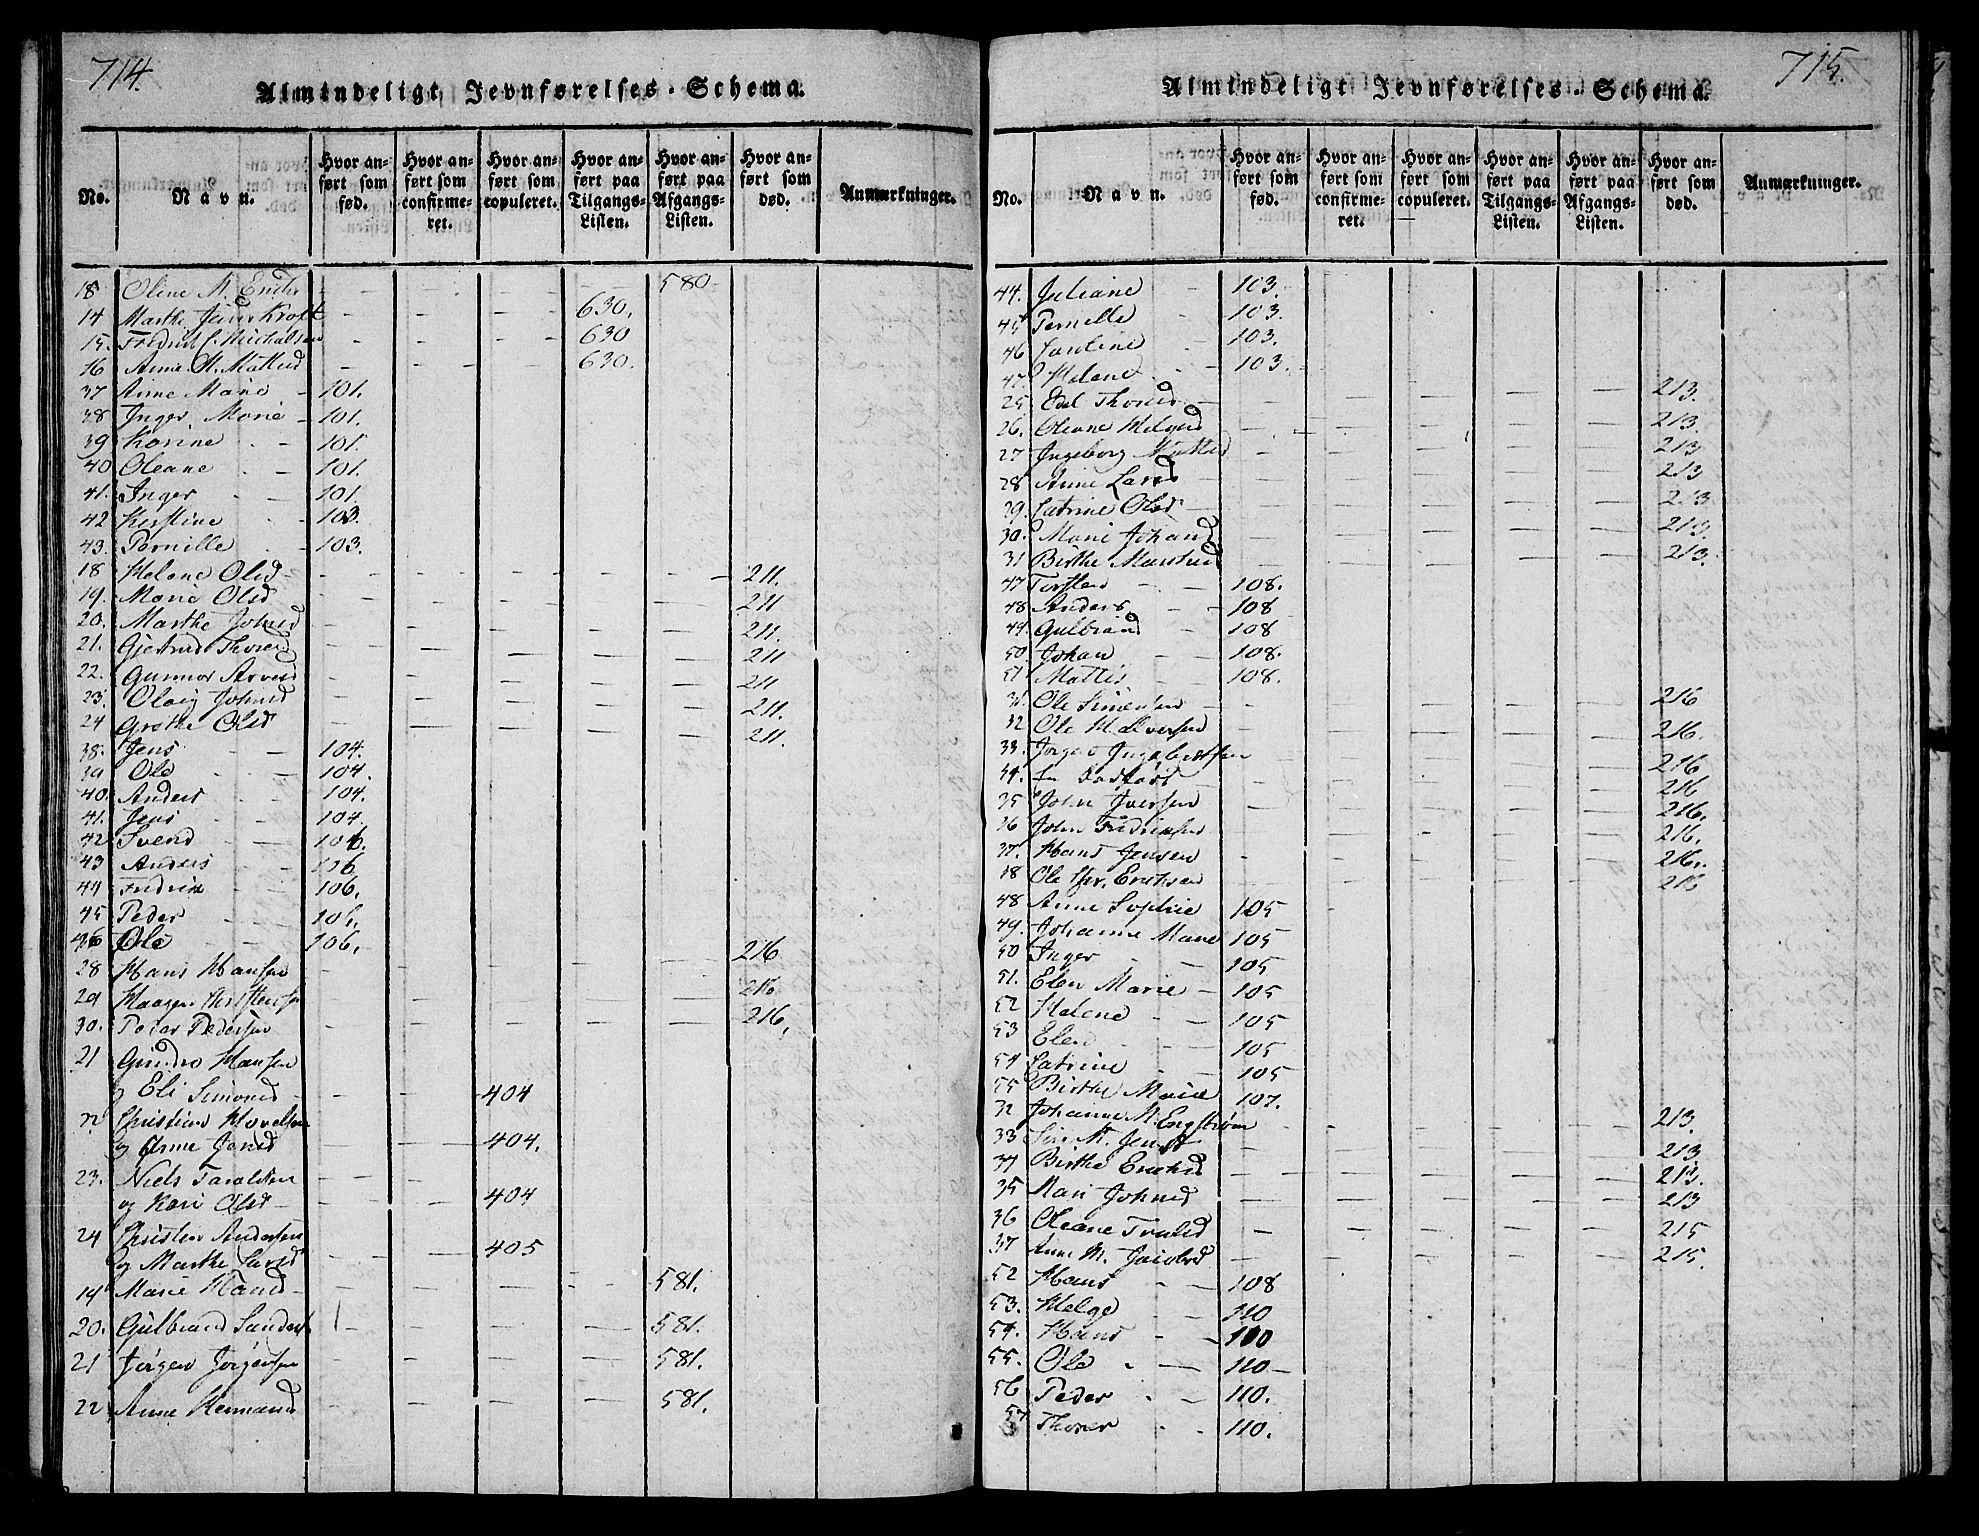 714.
Almindeligt Jevnførelses-Schema.
No. Navn. Hvor anført som fød. Hvor anført som confirmeret. Hvor anført som copuleret. Hvor anført paa Tilgangs-Listen. Hvor anført paa Afgangs-Listen. Hvor anført som død. Anmærkninger.
Oline M. 580
14 Marthe Krog 630.
15. 630
16 Anne M. 630.
37 Anne Marie 101.
38 Inger Marie 101.
39 Karine 101.
40 Oleane 101.
41. Inger 101.
42 Kirstine 103.
43. Pernille 103.
18 Helene Olsd 211.
19. Marie Olsd 211
20. Marthe Johnsd 211.
21. Gjertrud Thoresd 211
22. Gunnor 211
23. Olaug Johnsd 211.
24 Grethe Olsd 211.
38. Jens 104.
39 Ole 104.
40. Anders 104.
41. Jens 104.
42 Svend 106.
43 Anders 106
44 Fredrik 106.
45 Peder 106.
46 Ole 106.
28 Hans Hansen 216
29 Haagen 216
30. Peder Pedersen 216.
21 Hansen
og Eli Simonsd 404
22 Christian
og Anne Jensd 404.
23. Niels Taraldsen
og Kari Olsd 404
24 Christen Andersen
og Marthe Larsd 405
19 Marie Hansd 581.
20. Gulbrand 581.
21 Jørgen Jørgensen 581.
22 Anne 581.
715.
Almindeligt Jevnførelses-Schema.
No. Navn. Hvor anført som fød. Hvor anført som confirmeret. Hvor anført som copuleret. Hvor anført paa Tilgangs-Listen. Hvor anført paa Afgangs-Listen. Hvor anført som død. Anmærkninger.
44. Juliane 103.
45 Pernille 103.
46 103.
47. Helene 103.
25 213.
26. Oleane 213.
27 Ingeborg 213
28 Anne Larsd 213
29. Catrine Olsd 213
30. Marie Johansd 213.
31 Birthe 213.
47 Torsten 108.
48 Anders 108
49. Gulbrand 108
50. Johan 108.
51 Mattis 108.
31. Ole Simensen 216
32 Ole Halversen 216.
33. Jørgen Ingebretsen 216
34. 216
35 John Iversen 216.
36 John Fredriksen 216.
37. Hans Jensen 216.
38 Ole Chr. Eriksen 216
48 Anne Sophie 105
49. Johanne Marie 105
50 Inger 105
51. Elen Marie 105
52 Helene 105
53 Elen 105
54 Catrine 105
55 Birthe Marie 107.
32 Johanne M. Engstrøm 213.
33 213
34 Birthe 213.
35 Mari Johnsd 213
36 Oleane 215
37 Anne M. Jacobsd 215.
52 Hans 108
53. Helge 110
54. Hans 110
55. Ole 110
56 Peder 110.
57 Thorer 110.